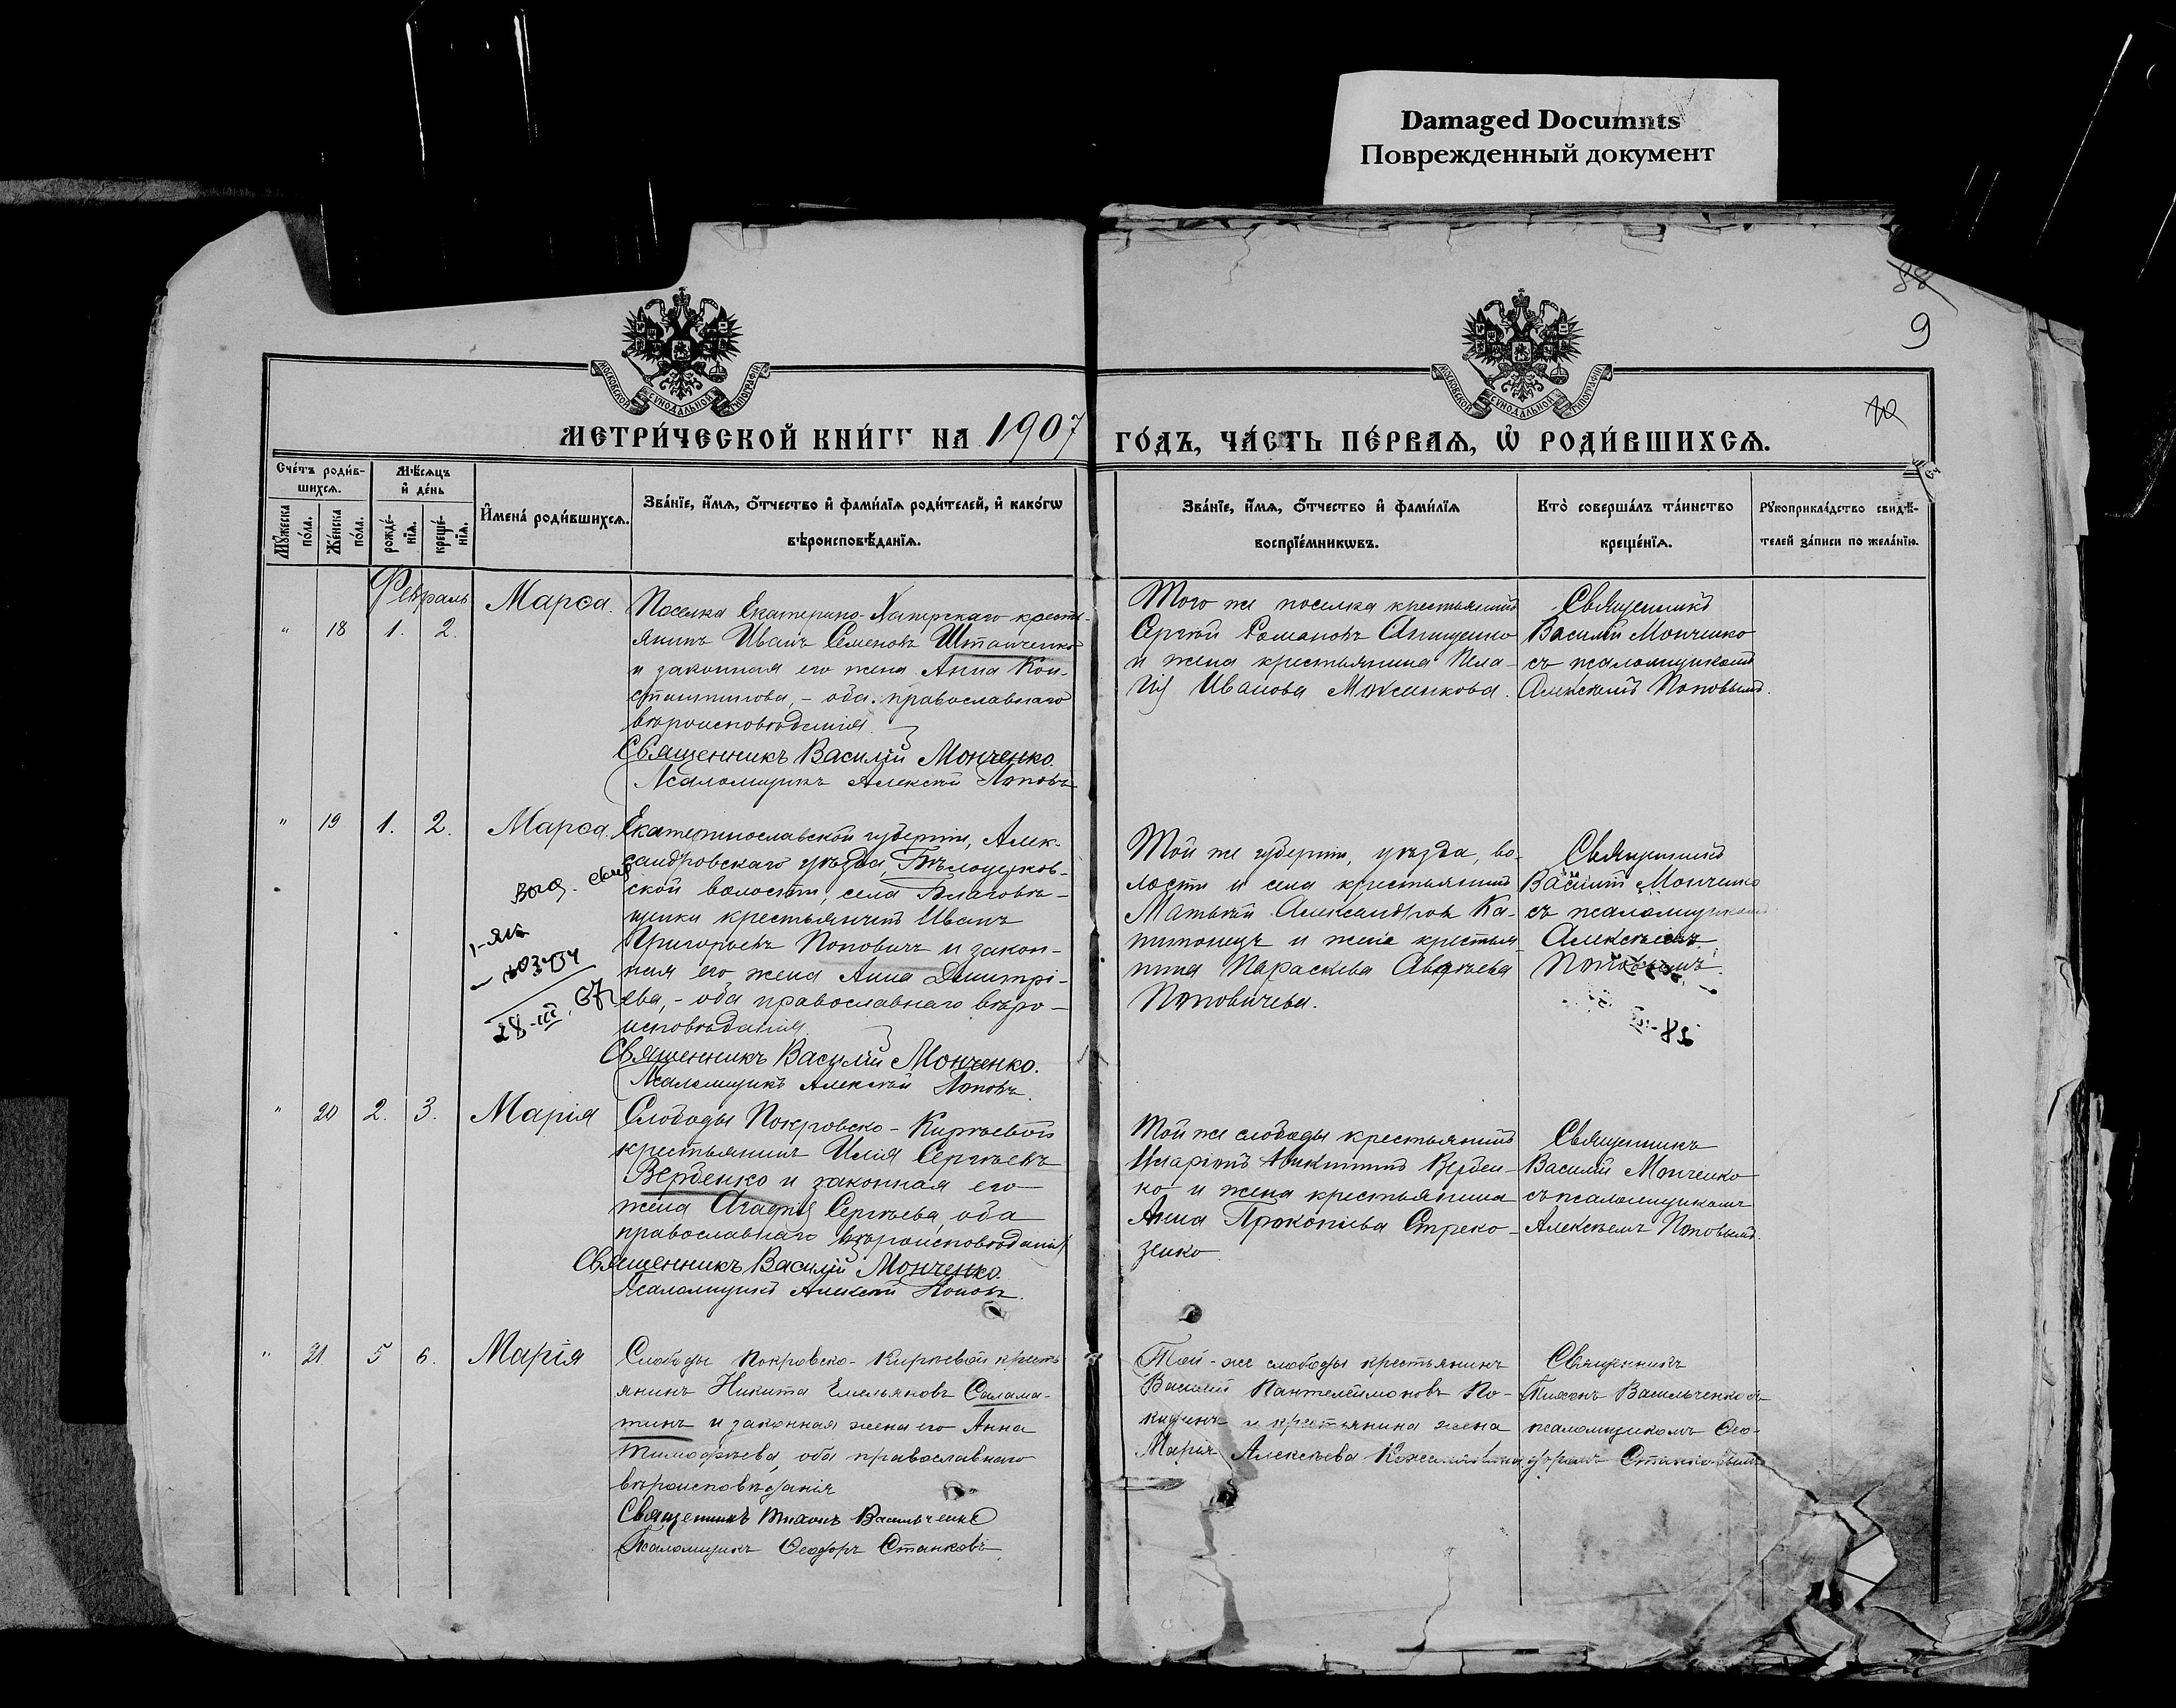 Damaged Documnts
Поврежденный документ
88
9
МОСКОВСКОЙ СѴНОДАЛЬНОЙ ТИПОГРАФІИ
МОСКОВСКОЙ СѴНОДАЛЬНОЙ ТИПОГРАФІИ
МЕТРИ́ЧЕСКОЙ КНИ́ГГ НА 1907
ГО́ДЪ, ЧА́СТЬ ПЕ́РВАѦ, Ѽ РОДИ́ВШИХСѦ.
Сче́тъ роди́в-
шихсѧ.
Мꙋ́жеска по́ла.
Же́нска по́ла.
Мѣ́сѧцъ
и҆ де́нь
рожде́-
нїѧ.
креще́-
нїѧ.
И҆мена̀ роди́вшихсѧ.
Зва́нїе, и҆́мѧ, ѻ҆́тчество и҆ фами́лїѧ роди́телей, и҆ како́гѡ
вѣроисповѣ́данїѧ.
Зва́нїе, и҆́мѧ, ѻ҆́тчество и҆ фами́лїѧ
воспрїе́мникѡвъ.
Кто̀ соверша́лъ та́инство
креще́нїѧ.
Рꙋкоприкла́дство свидѣ́-
телей за́писи по жела́нїю.
Февраль
" 18 1. 2. Марѳа.
Поселка Екатерино-Хаперскаго кресть-
янинъ Иванъ Семеновъ Штанченко
и законная его жена Анна Кон-
стантинова, - оба православнаго
вѣроисповѣданія.
Священникъ Василій Монченко.
Псаломщикъ Алексѣй Поповъ
Того же поселка крестьянинъ
Сергѣй Романовъ Анищенко
и жена крестьянина Пела-
гія Иванова Можсинкова.
Священникъ
Василій Монченко
съ псаломщикомъ
Алексѣемъ Поповымъ.
" 19 1. 2. Марѳа.
Екатеринославской губерніи, Алек-
сандровскаго уѣзда, Бѣлоцерков-
ской волости, села Благовѣ-
щенки крестьянинъ Иванъ
Григорьевъ Поповичъ и закон-
ная его жена Анна Димитрі-
ева, - оба православнаго вѣро-
исповѣданія.
Священникъ Василій Монченко.
Псаломщикъ Алексѣй Поповъ.
1-ЯК
28-III.67
Той же губерніи, уѣзда, во-
лости и села крестьянинъ
Матвѣй Александровъ Ка-
питонецъ и жена крестья-
нина Параскева Авдѣева
Поповичева.
Священникъ
Василій Монченко
съ псаломщикомъ
Алексѣемъ
Поповымъ.
" 20 2. 3. Марія
Слободы Покровско-Кирѣевой
крестьянинъ Илія Сергѣевъ
Вербенко и законная его
жена Агафія Сергѣева, оба
православнаго вѣроисповѣданія
Священникъ Василій Монченко.
Псаломщикъ Алексѣй Поповъ.
Той же слободы крестьянинъ
Иларіонъ Никитинъ Вербен-
ко и жена крестьянина
Анна Прокопіева Стреко-
зенко
Священникъ
Василій Монченко
съ псаломщикомъ
Алексѣемъ Поповымъ.
" 21 5 6. Марія
Слободы Покровско-Кирѣевой кресть
янинъ Никита Емельяновъ Салама-
тинъ и законная жена его Анна
Тимофѣева, оба православнаго
вѣроисповѣданія
Священникъ Тихонъ Васильченко
Псаломщикъ Ѳеодоръ Станковъ.
Той-же слободы крестьянинъ
Василій Пантелеймоновъ По-
кидинъ и крестьянина жена
Марія Алексѣева
Священникъ
Тихонъ Васильченко съ
псаломщикомъ Ѳео-
доромъ Станковымъ